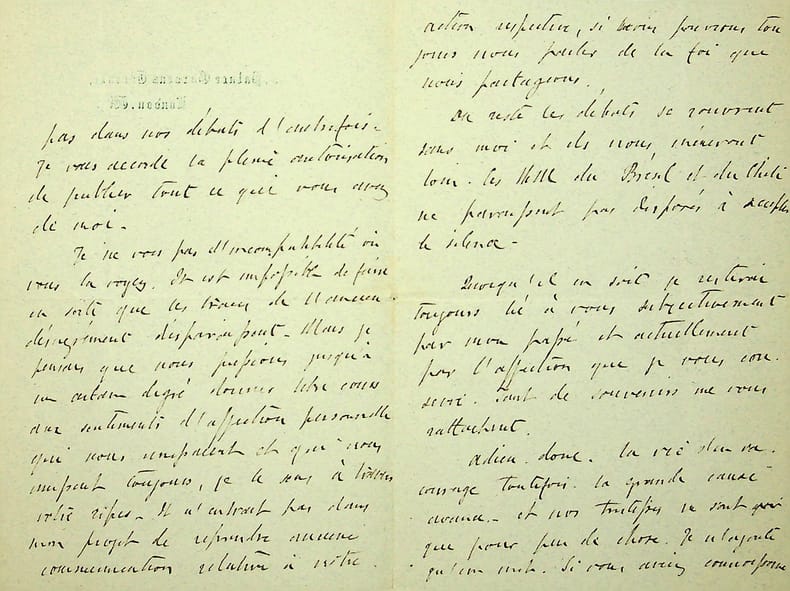 Palace Gardens Terrace,
London. W.
pas dans nos débats d'autrefois -
Je vous accorde la pleine autorisation
de publier tout ce que vous avez
de moi -
Je ne vois pas d'incompatibilité où
vous la voyez. Il est impossible de faire
en sorte que les traces de l'ancien
désagrément disparaissent - Mais je
pensais que nous puissions jusqu'à
un certain degré donner libre cours
aux sentiments d'affection personnelle
qui nous unissaient et qui nous
unissent toujours, je le sens à travers
votre
Il n'entrait pas dans
mon projet de reprendre aucune
communication relative à notre
action respective, si nous pouvions tou
jours nous parler de la foi que
nous partageons.
Du reste les débats se rouvrent
sans moi et ils nous mèneront
loin - Les MM du Brésil et du Chili
ne paraissent pas disposés à accepter
le silence -
Quoiqu'il en soit je resterai
toujours lié à vous subjectivement
par mon passé et actuellement
par l'affection que je vous con-
serve. Tant de souvenirs me vous
rattachent.
Adieu donc. la vie s'en va.
courage toutefois. la grande cause
avance - et nos
ne sont
que pour peu de chose. Je n'ajoute
qu'un mot. Si vous aviez